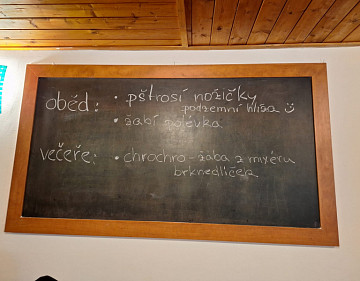 oběd: • pštrosí nožičky
podzemní hlísa ☺
• žabí polévka
večeře: • chrochro-žába z myéru
brknedlíček